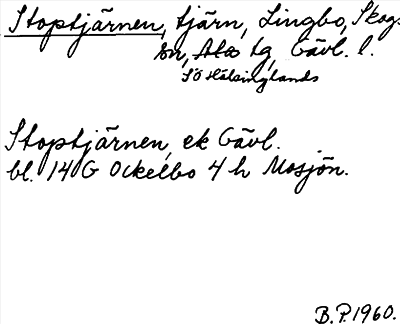 Stoptjärnen, tjärn, Lingbo, Skogs
sn, Ala tg, Gävl. l.
SÖ Hälsinglands
Stoptjärnen, ek Gävl.
bl. 14 G Ockelbo 4 h Mosjön.
B.P. 1960.